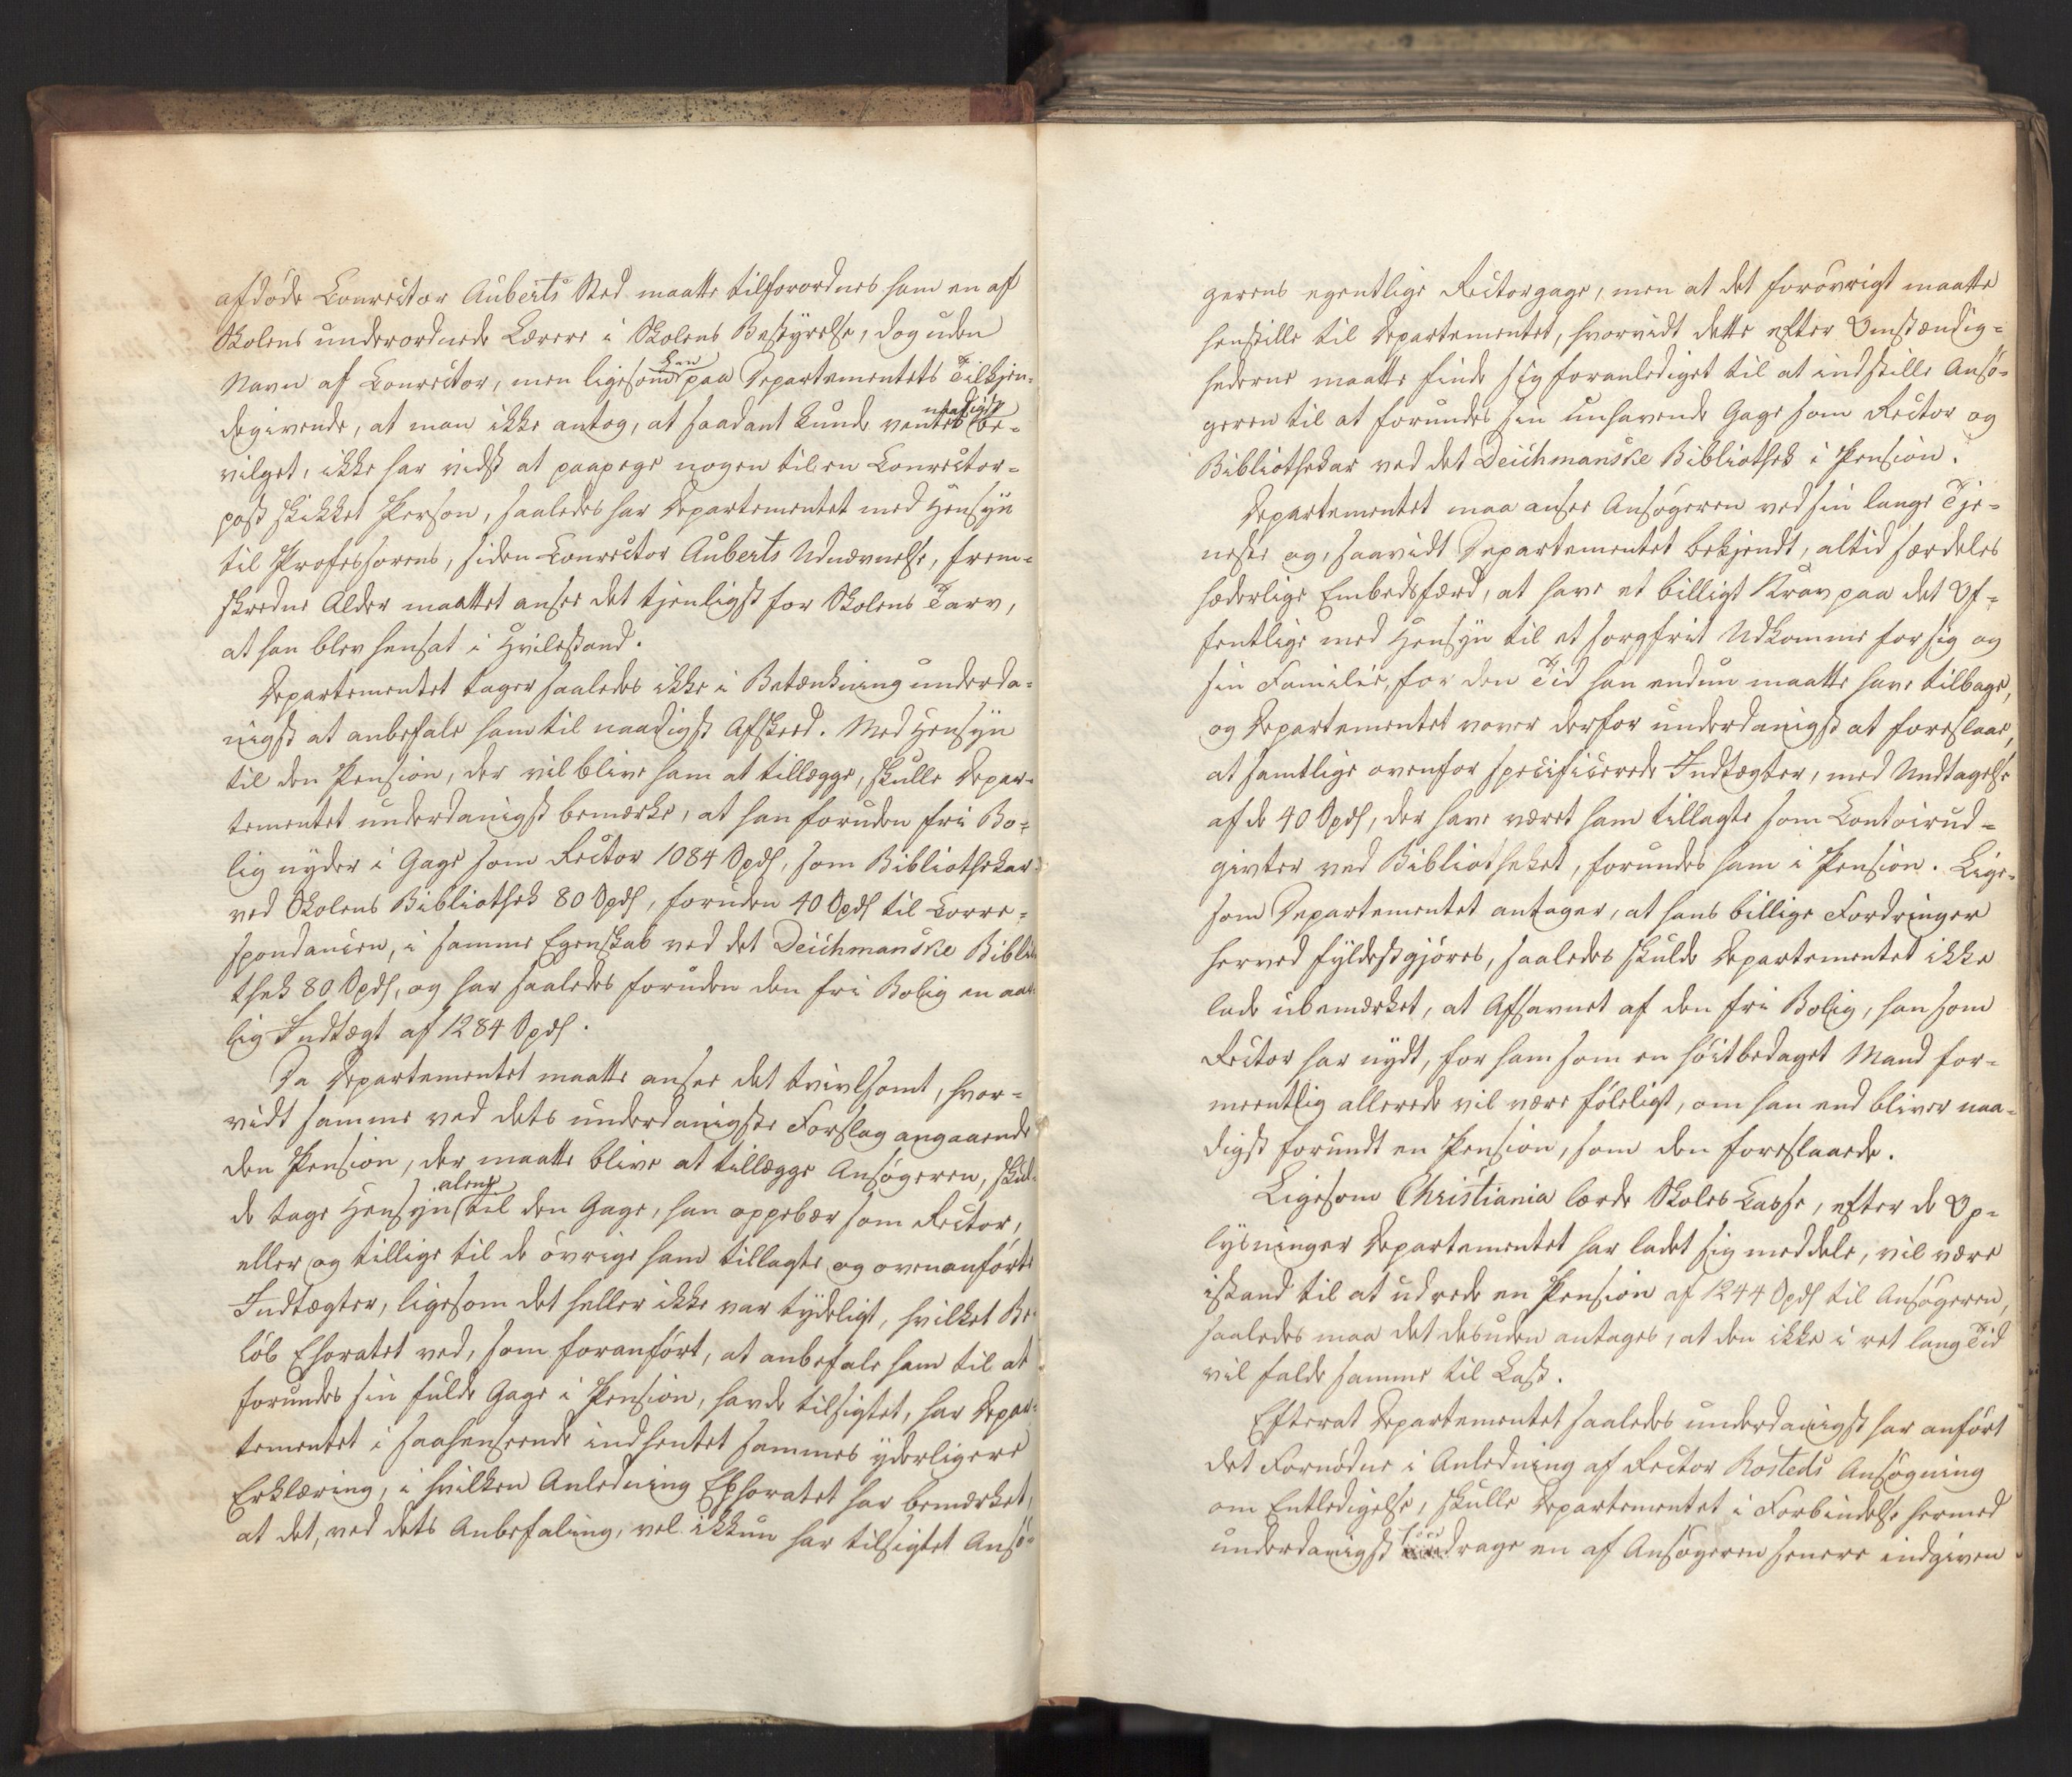 afdøde Conrector Auberts Sted maatte tilforordnes ham en af
Skolens underordnede Lærere i Skolens Bestyrelse, dog uden
Navn af Conrector, men ligesom han paa Departementets Tilkjen-
degivende, at man ikke antog, at saadant kunde ventes naadigst be-
vilget, ikke har vidst at paapege nogen til en Conrector-
post skikket Person, saaledes har Departementet med Hensyn
til Professorens, siden Conrector Auberts Udnævnelse, frem-
skredne Alder maattet ansee det tjenligst for Skolens Tarv,
at han blev hensat i Hvilestand.
Departementet tager saaledes ikke i Betænkning underda-
nigst at anbefale ham til naadigst Afsked. Med Hensyn
til den Pension, der vil blive ham at tillægge, skulle Depar-
tementet underdanigst bemærke, at han foruden fri Bo-
lig nyder i Gage som Rector 1084 Spd, som Bibliothekar
ved Skolens Bibliothek 80 Spd, foruden 40 Spd til Corre-
spondancen, i samme Egenskab ved det Deichmanske Biblio
thek 80 Spd, og har saaledes foruden den fri Bolig en aar-
lig Indtægt af 1284 Spd.
Da Departementet maatte ansee det tvivlsomt, hvor-
vidt samme ved dets underdanigste Forslag angaaende
den Pension, der maatte blive at tillægge Ansøgeren, skul-
de tage Hensyn alene til den Gage, han oppebær som Rector,
eller og tillige til de øvrige ham tillagte og ovenanførte
Indtægter, ligesom det heller ikke var tydeligt, hvilket Be-
løb Ephoratet ved, som foranført, at anbefale ham til at
forundes sin fulde Gage i Pension, havde tilsigtet, har Depar-
tementet i saahenseende indhentet sammes yderligere
Erklæring, i hvilken Anledning Ephoratet har bemærket,
at det, ved dets Anbefaling, vel ikkun har tilsigtet Ansø-
gerens egentlige Rectorgage, men at det forøvrigt maatte
henstille til Departementet, hvorvidt dette efter Omstændig-
hederne maatte finde sig foranlediget til at indstille Ansø-
geren til at forundes sin unhavende Gage som Rector og
Bibliothekar ved det Deichmanske Bibliothek i Pension.
Departementet maa ansee Ansøgeren ved sin lange Tje-
neste og, saavidt Departementet bekjendt, altid særdeles
hæderlige Embedsfærd, at have et billigt Krav paa det Of-
fentlige med Hensyn til et sorgfrit Udkomme for sig og
sin Familie, for den Tid han endnu maatte have tilbage,
og Departementet vover derfor underdanigst at foreslaae,
at samtlige ovenfor specificerede Indtægter, med Undtagelse
af de 40 Spd, der have været ham tillagte som Contoirud-
givter ved Bibliotheket, forundes ham i Pension. Lige-
som Departementet antager, at hans billige Fordringer
herved fyldestgjøres, saaledes skulde Departementet ikke
lade ubemærket, at Afsavnet af den fri Bolig, han som
Rector har nydt, for ham som en høitbedaget Mand for-
meentlig allerede vil være føleligt, om han end bliver naa-
digst forundt en Pension, som den foreslaaede.
Ligesom Christiania lærde Skoles Casse, efter de Op-
lysninger Departementet har ladet sig meddele, vil være
istand til at udrede en Pension af 1244 Spd til Ansøgeren,
saaledes maa det desuden antages, at den ikke i ret lang Tid
vil falde samme til Last.
Efterat Departementet saaledes underdanigst har anført
det Fornødne i Anledning af Rector Rosteds Ansøgning
om Entledigelse, skulle Departementet i Forbindelse hermed
underdanigst foredrage en af Ansøgeren senere indgiven